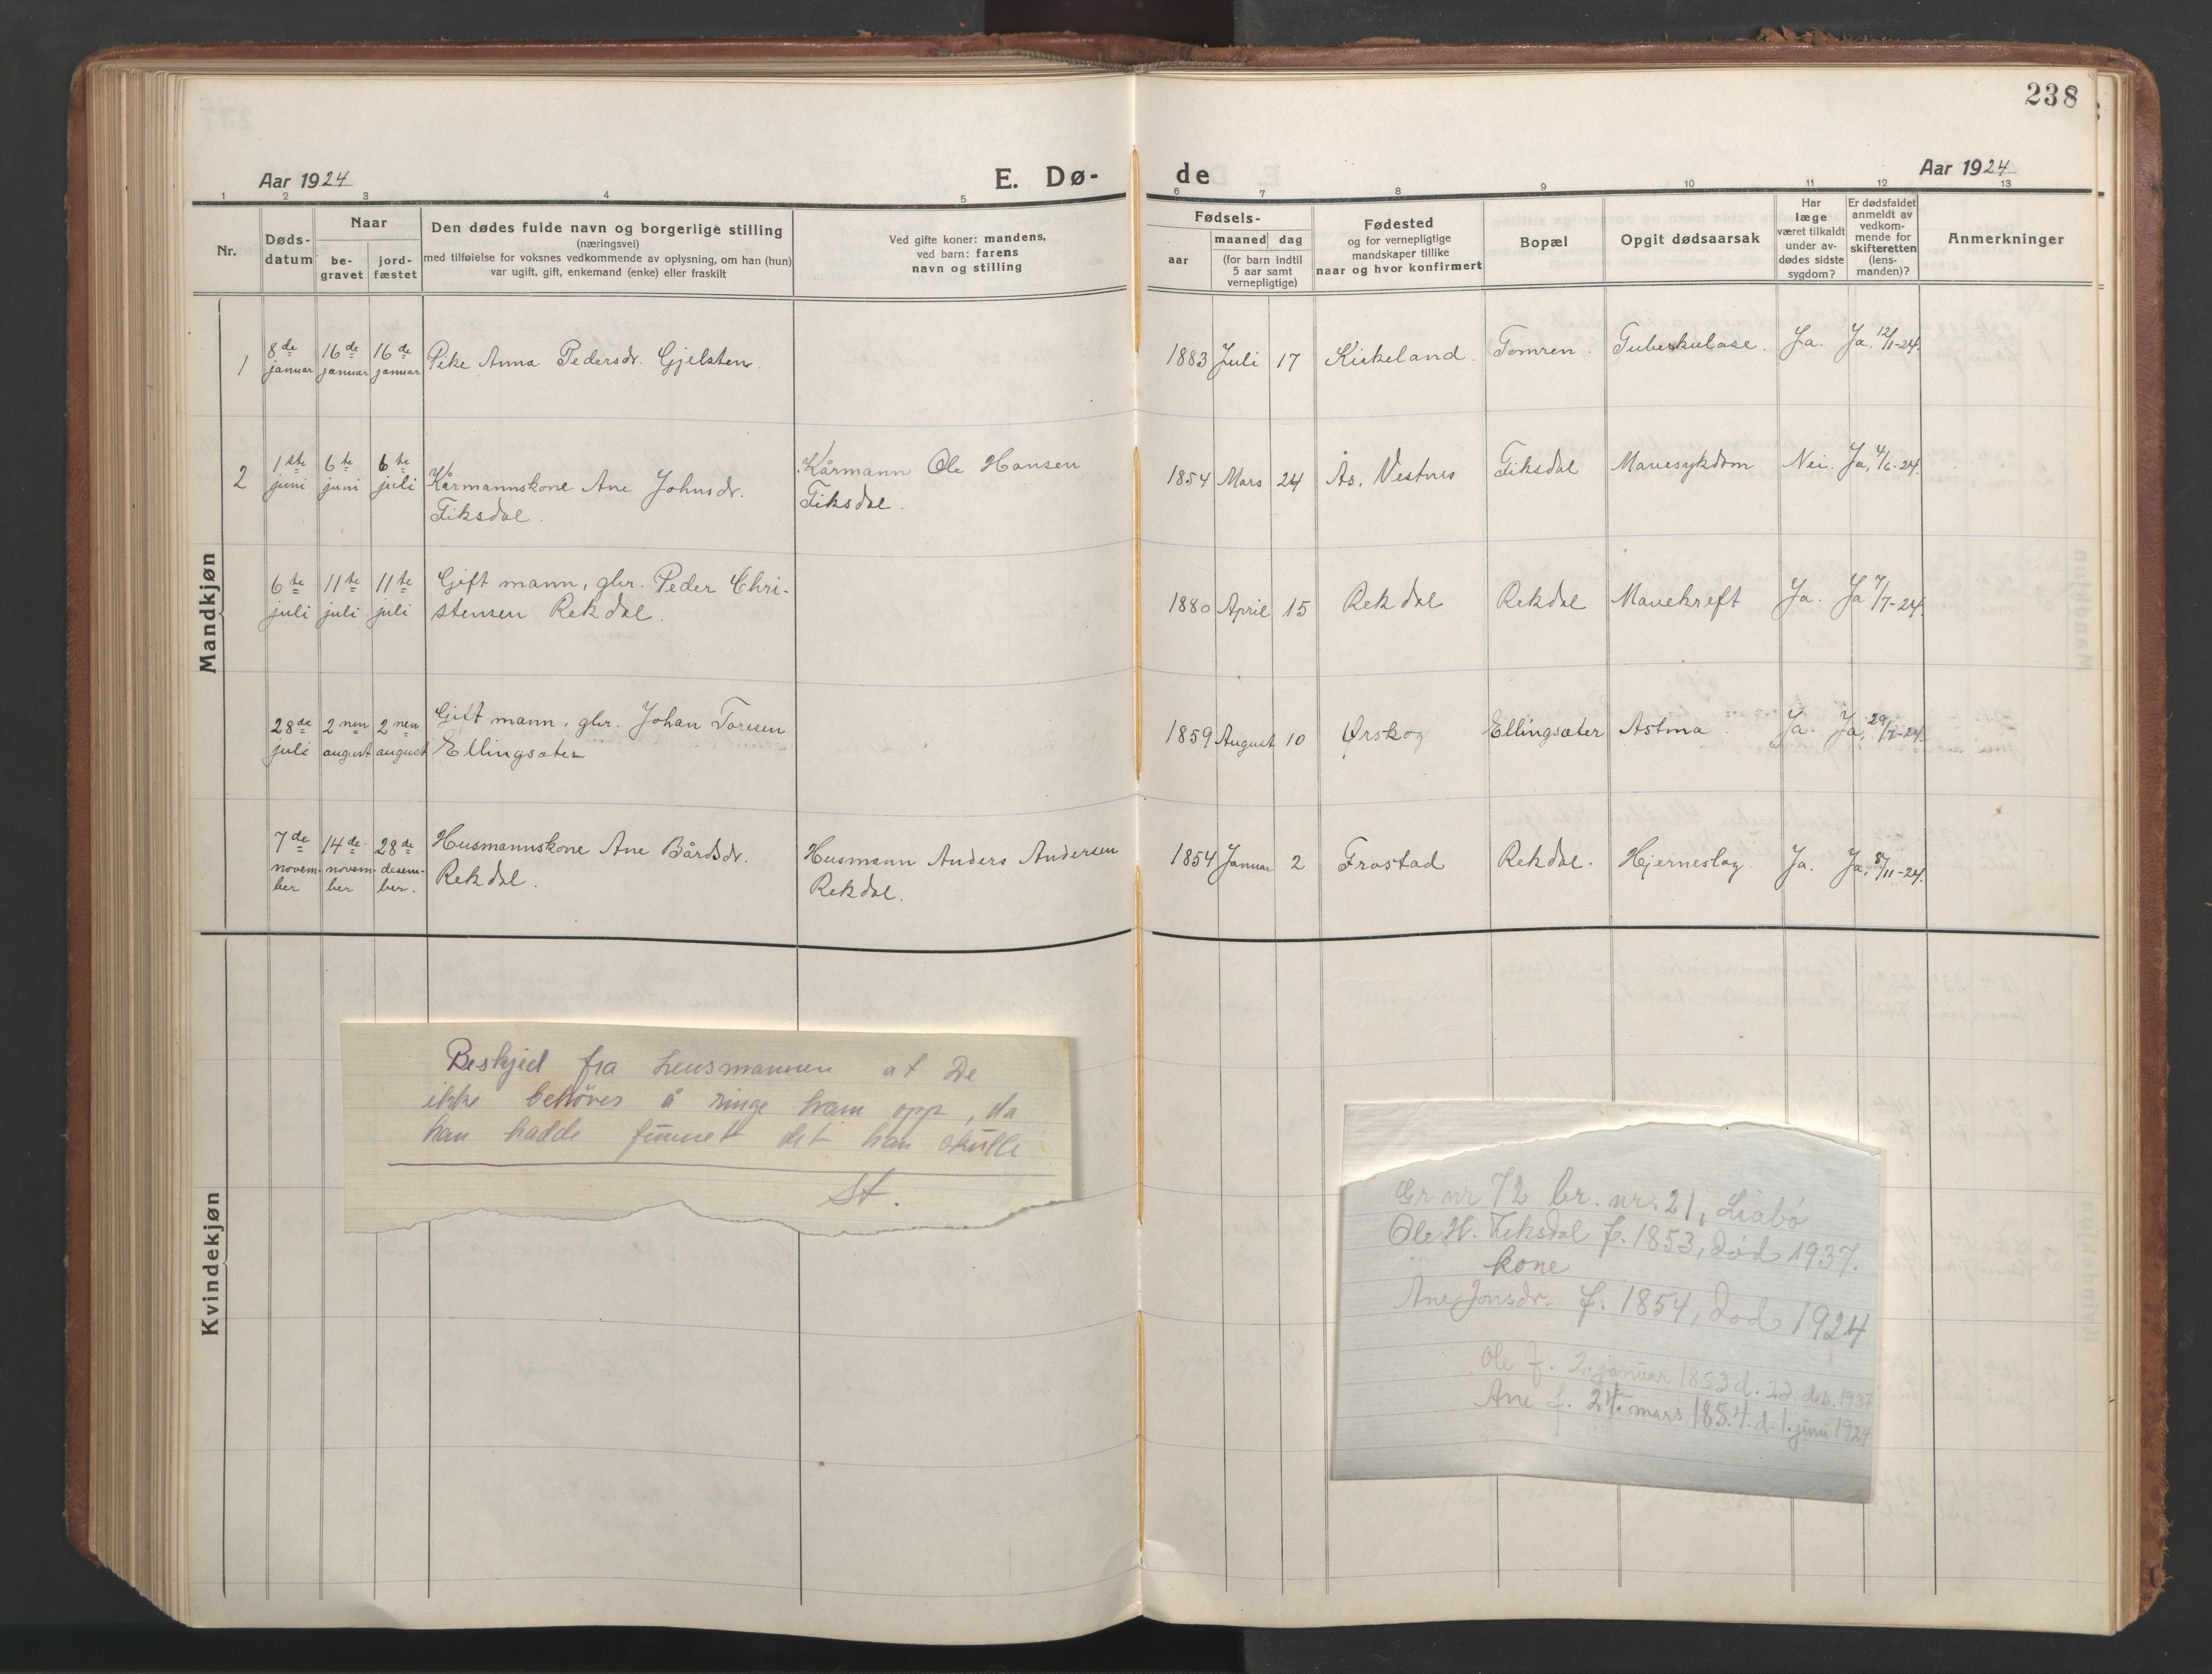 238
Aar 1924
E. Dø-
de
Aar 1924
1 2 3 4 5 6 7 8 9 10 11 12 13
Nr.
Døds-
datum
Naar
be-
gravet
jord-
fæstet
Den dødes fulde navn og borgerlige stilling
(næringsvei)
med tilføielse for voksnes vedkommende av oplysning, om han (hun)
var ugift, gift, enkemand (enke) eller fraskilt
Ved gifte koner: mandens,
ved barn: farens
navn og stilling
Fødsels-
aar
maaned dag
(for barn indtil
5 aar samt
vernepligtige)
Fødested
og for vernepligtige
mandskaper tillike
naar og hvor konfirmert
Bopæl
Opgit dødsaarsak
Har
læge
været tilkaldt
under av-
dødes sidste
sygdom?
Er dødsfaldet
anmeldt av
vedkom-
mende for
skifteretten
(lens-
manden)?
Anmerkninger
Mandkjøn
1
8de
januar
16de
januar
16de
januar
Pike Anna Pedersdr. Gjelsten.
1883 Juli 17
Kirkeland.
Tomren.
Tuberkulose.
Ja.
Ja, 12/1-24.
2
1ste
juni
6te
juni
6te
juli
Kårmannskone Ane Johnsdr.
Fiksdal.
Kårmann Ole Hansen
Fiksdal.
1854 Mars 24
Ås, Vestnes
Fiksdal
Mavesykdom
Nei.
Ja, 4/6-24.
6te
juli
11te
juli
11te
juli
Gift mann, gbr. Peder Chri-
stensen Rekdal.
1880 April 15
Rekdal
Rekdal
Mavekreft
Ja.
Ja 7/7-24.
28de
juli
2nen
august
2nen
august
Gift mann, gbr. Johan Toresen
Ellingsæter
1859 August 10
Ørskog
Ellingsæter
Astma.
Ja.
Ja, 29/7-24.
7de
novem-
ber
14de
novem-
ber
28de
desem-
ber.
Husmannskone Ane Bårdsdr.
Rekdal.
Husmann Anders Andersen
Rekdal.
1854 Januar 2
Frostad
Rekdal.
Hjerneslag.
Ja.
Ja, 8/11-24.
Kvindekjøn
Beskjed fra lensmannen at De
ikke behöver å ringe ham opp, da
han hadde funnet det han skulle
St.
Gr nr 72 br. nr. 21, Liabö
Ole H. Fiksdal f. 1853, död 1937.
kone
Ane Jonsdr. f. 1854, död 1924
Ole f. 2. januar 1853 d. 23. des. 1937
Ane f. 24. mars 1854. d. 1. juni 1924